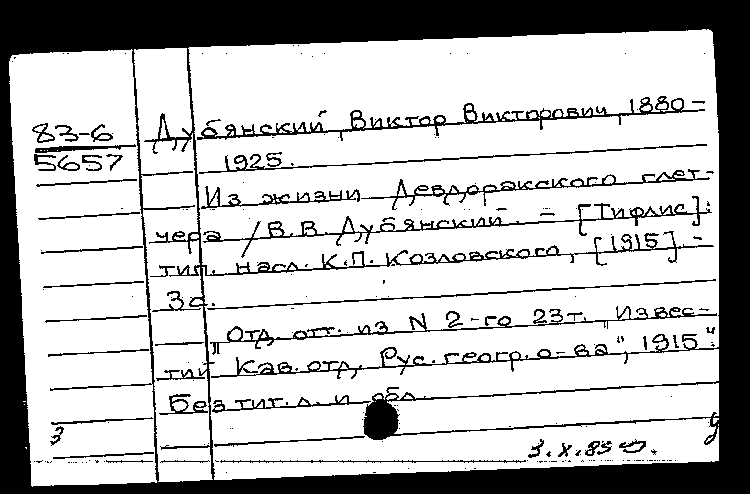 83-6
5657
Дубянский, Виктор Викторович, 1880-
1925.
Из жизни Девдоракского глет-
чера / В.В. Дубянский. - [Тифлис]:
тип. насл. К.П. Козловского, [1915]. -
3с.
"Отд. отт. из N 2-го 23т. "Извес-
тий Кав. отд. Рус. геогр. о-ва", 1915".
Без тит. л. и обл.
3
3.X.85